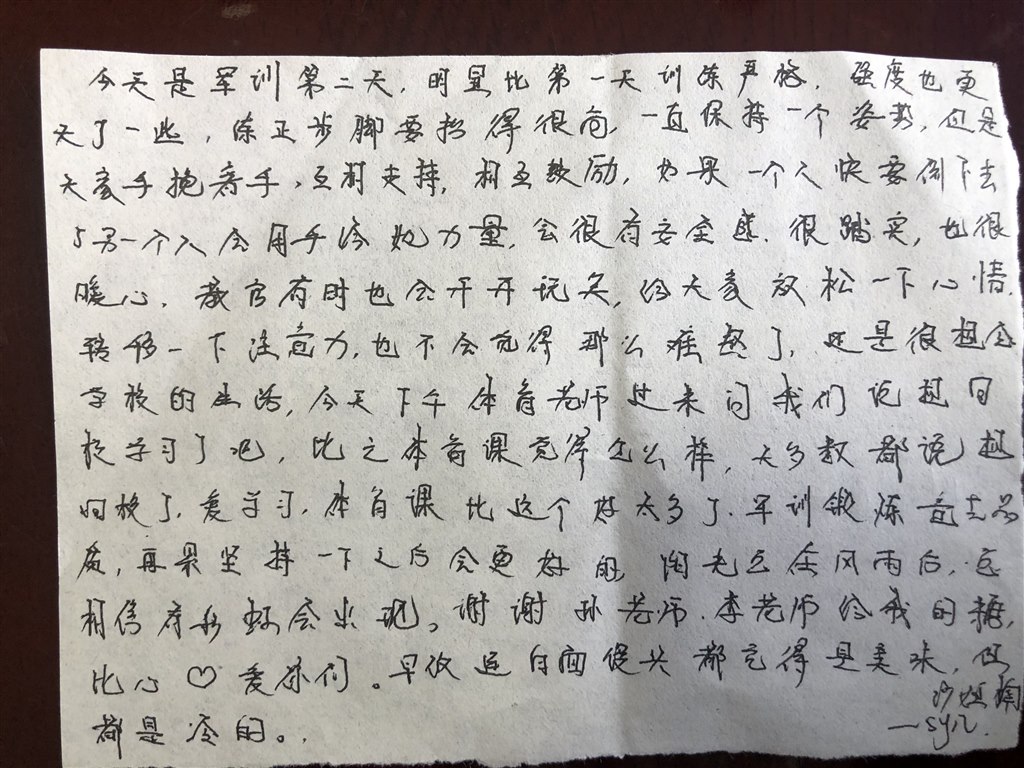 今天是军训第二天,明显比第一天训练严格,强度也更
大了一些,练正步脚要抬得很高,一直保持一个姿势,但是
大家手挽着手,互相支持,相互鼓励,如果一个人快要倒下去
另一个人会用手给她力量,会很有安全感,很踏实,也很
暖心,教官有时也会开开玩笑,给大家放松一下心情,
转移一下注意力,也不会觉得那么疲惫了,还是很想念
学校的生活,今天下午体育老师过来问我们说想回
校学习了吧,比之体育课觉得怎么样,大多数都说想
回校了,爱学习,体育课比这个好太多了,军训锻炼意志品
质,再果坚持一下之后会更好的,阳光总在风雨后,
相信有彩虹会出现。谢谢孙老师,李老师给我的糖,
比心♡爱你们。早饭连白面馒头都觉得是美味,但
都是冷的。
—syn.